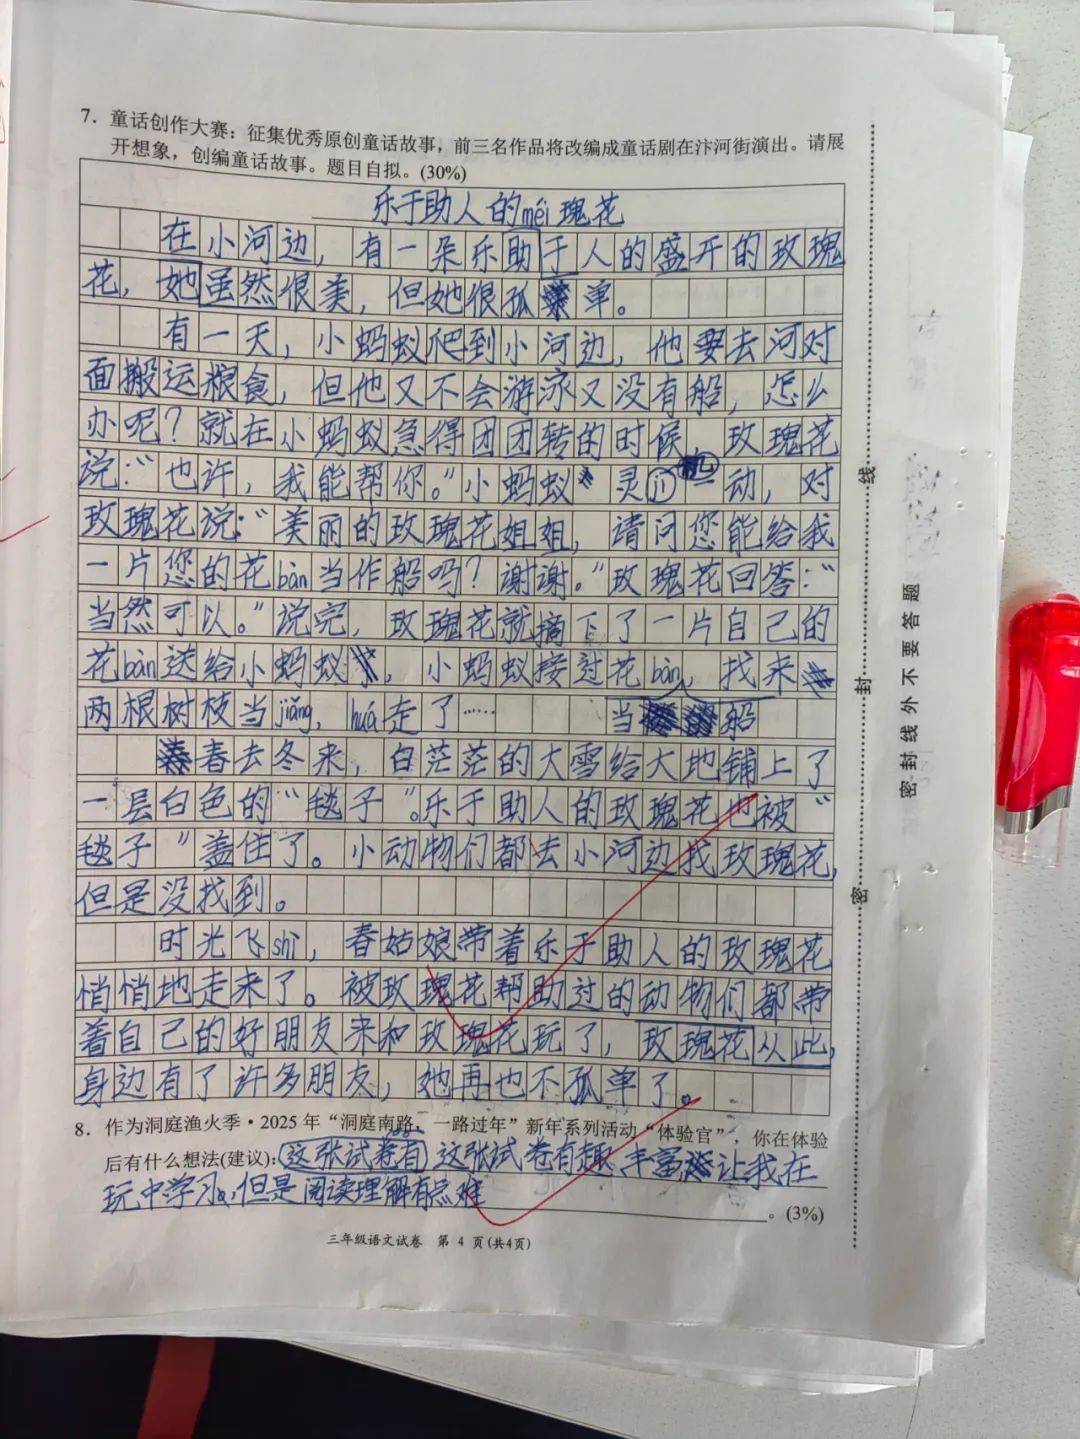 7. 童话创作大赛：征集优秀原创童话故事，前三名作品将改编成童话剧在汴河街演出。请展
开想象，创编童话故事。题目自拟。(30%)
乐于助人的méi瑰花
在小河边，有一朵乐助于人的盛开的玫瑰
花，她虽然很美，但她很孤单。
有一天，小蚂蚁爬到小河边，他要去河对
面搬运粮食，但他又不会游泳又没有船，怎么
办呢？就在小蚂蚁急得团团转的时候，玫瑰花
说：“也许，我能帮你。”小蚂蚁灵机一动，对
玫瑰花说：“美丽的玫瑰花姐姐，请问您能给我
一片您的花bàn当作船吗？谢谢。”玫瑰花回答：“
当然可以。”说完，玫瑰花就摘下了一片自己的
花bàn送给小蚂蚁，小蚂蚁接过花bàn，找来
两根树枝当jiāng，huá走了……
当船
春去冬来，白茫茫的大雪给大地铺上了
一层白色的“毯子”。乐于助人的玫瑰花也被“
毯子”盖住了。小动物们都去小河边找玫瑰花，
但是没找到。
时光飞shì，春姑娘带着乐于助人的玫瑰花
悄悄地走来了。被玫瑰花帮助过的动物们都带
着自己的好朋友来和玫瑰花玩了，玫瑰花从此，
身边有了许多朋友，她再也不孤单了。
8. 作为洞庭渔火季·2025年“洞庭南路，一路过年”新年系列活动“体验官”，你在体验
后有什么想法(建议)：这张试卷有 这张试卷有趣、丰富 让我在
玩中学习，但是阅读理解有点难
。(3%)
三年级语文试卷 第 4 页(共4页)
密封线外不要答题
密 封 线